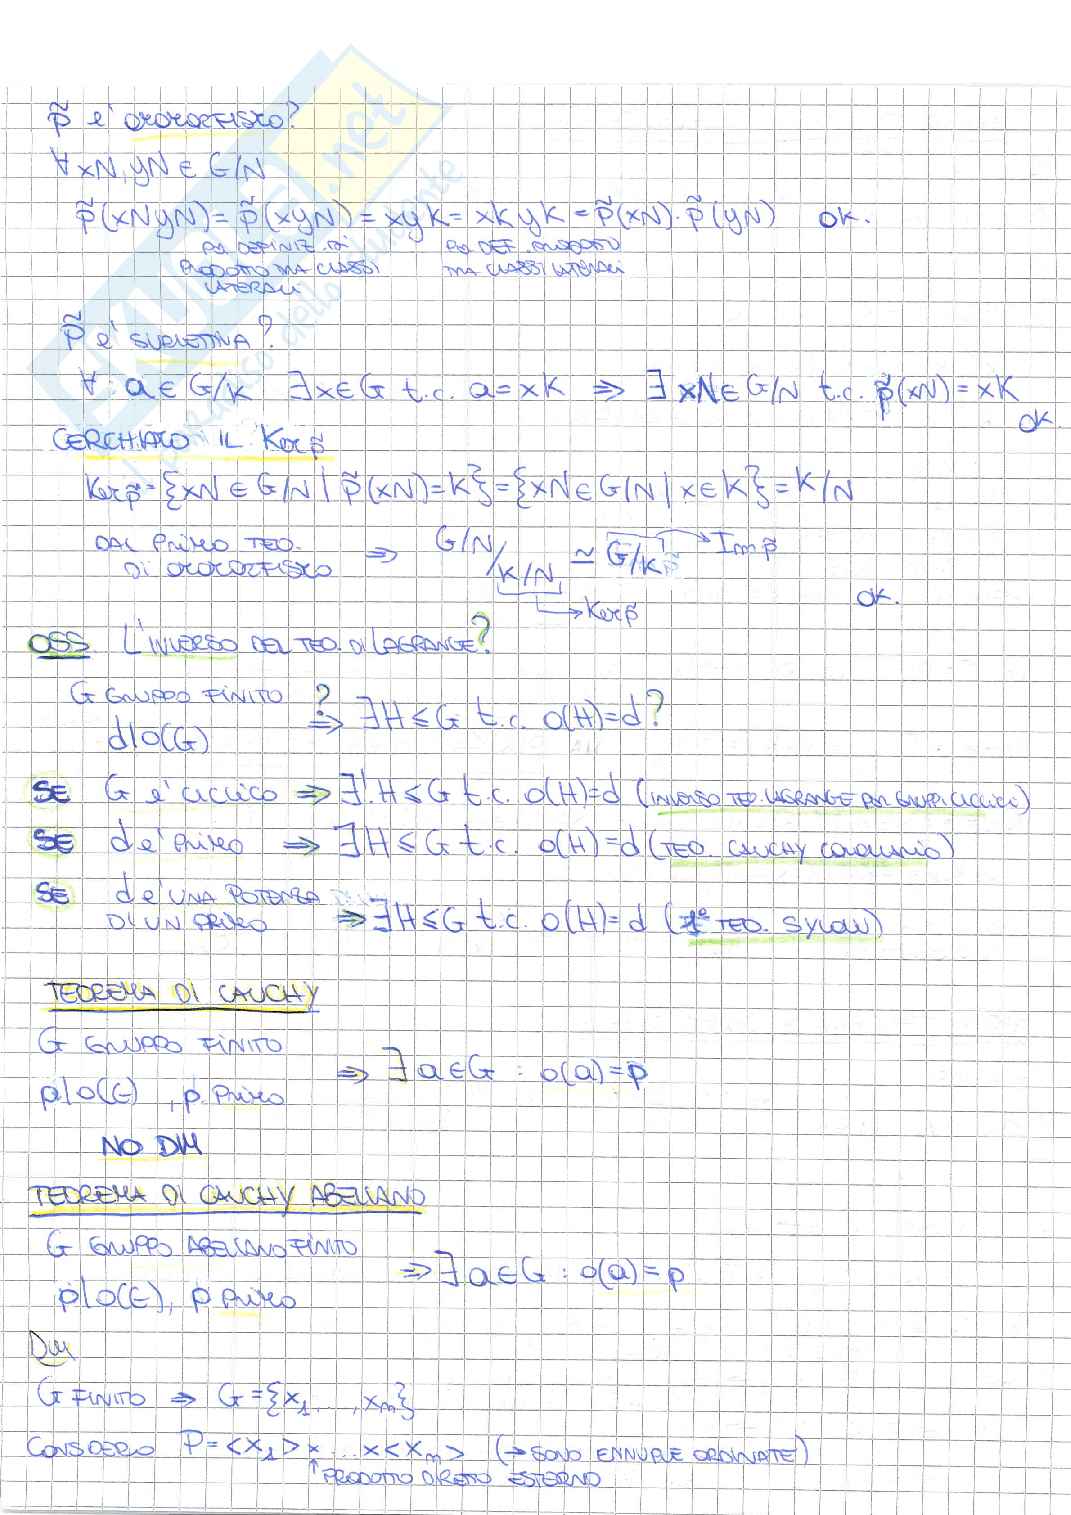 p̃ e' omomorfismo?
∀ xN, yN ∈ G/N
p̃(xNyN) = p̃(xyN) = xyK = xKyK = p̃(xN)·p̃(yN) ok.
per definiz. di per def. prodotto
prodotto tra classi tra classi laterali
laterali
p̃ e' suriettiva?
∀ a ∈ G/K ∃x ∈ G t.c. a = xK ⇒ ∃ xN ∈ G/N t.c. p̃(xN) = xK
ok.
Cerchiamo il Ker p̃
Ker p̃ = {xN ∈ G/N | p̃(xN) = K} = {xN ∈ G/N | x ∈ K} = K/N
dal primo teo. ⇒ G/N / K/N ≃ G/K → Im p̃
di omomorfismo
→ Ker p̃ ok.
OSS L'inverso del teo. di Lagrange?
G gruppo finito ?⇒ ∃ H ≤ G t.c. o(H) = d?
d | o(G)
SE G e' ciclico ⇒ ∃! H ≤ G t.c. o(H) = d (inverso teo. Lagrange per gruppi ciclici)
SE d e' primo ⇒ ∃ H ≤ G t.c. o(H) = d (teo. Cauchy corollario)
SE d e' una potenza
di un primo ⇒ ∃ H ≤ G t.c. o(H) = d (1° teo. Sylow)
TEOREMA DI CAUCHY
G gruppo finito
⇒ ∃ a ∈ G : o(a) = p
p | o(G), p primo
NO DIM
TEOREMA DI CAUCHY ABELIANO
G gruppo abeliano finito
⇒ ∃ a ∈ G : o(a) = p
p | o(G), p primo
DIM
G finito ⇒ G = {x₁, ..., xₘ}
Considero P = <x₁> × ... × <xₘ> (→ sono ennuple ordinate)
↑ prodotto diretto esterno